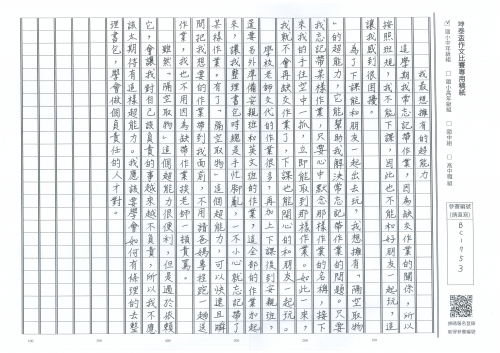 坤泰盃作文比賽專用稿紙
國小中年級組 國小高年級組 國中組 高中職組
參賽編號
(請填寫)
BC1753
我最想擁有的超能力
這學期我常忘記帶作業，因為缺交作業的關係，所以
按照班規，我不能下課，因此也不能和好朋友一起玩，這
讓我感到很困擾。
為了下課能和朋友一起出去玩，我想擁有「隔空取物
」的超能力，它能幫助我解決常忘記帶作業的問題。只要
我忘記帶某樣作業，只要心中默念那樣作業的名稱，接下
來我的手往空中一抓，立即能取到那樣作業。如此一來，
我就不會再缺交作業了，下課也能開心的和朋友一起玩。
學校老師交代的作業很多，再加上下課後到安親班，
還要另外準備安親班和英文班的作業，這全部的作業加起
來，讓我整理書包時總是手忙腳亂，一不小心就忘記帶了
某樣作業。有了「隔空取物」這個超能力，可以快速且瞬
間把我想要的作業帶到我面前，不用請爸媽專程跑一趟送
作業，我也不用因為缺帶作業挨老師一頓責罵。
雖然「隔空取物」這個超能力很便利，但是過於依賴
它，會讓我對自己該負責的事越來越不負責，所以我不應
該太期待有這樣超能力。我應該要學會如何有條理的去整
理書包，學會做個負責任的人才對。